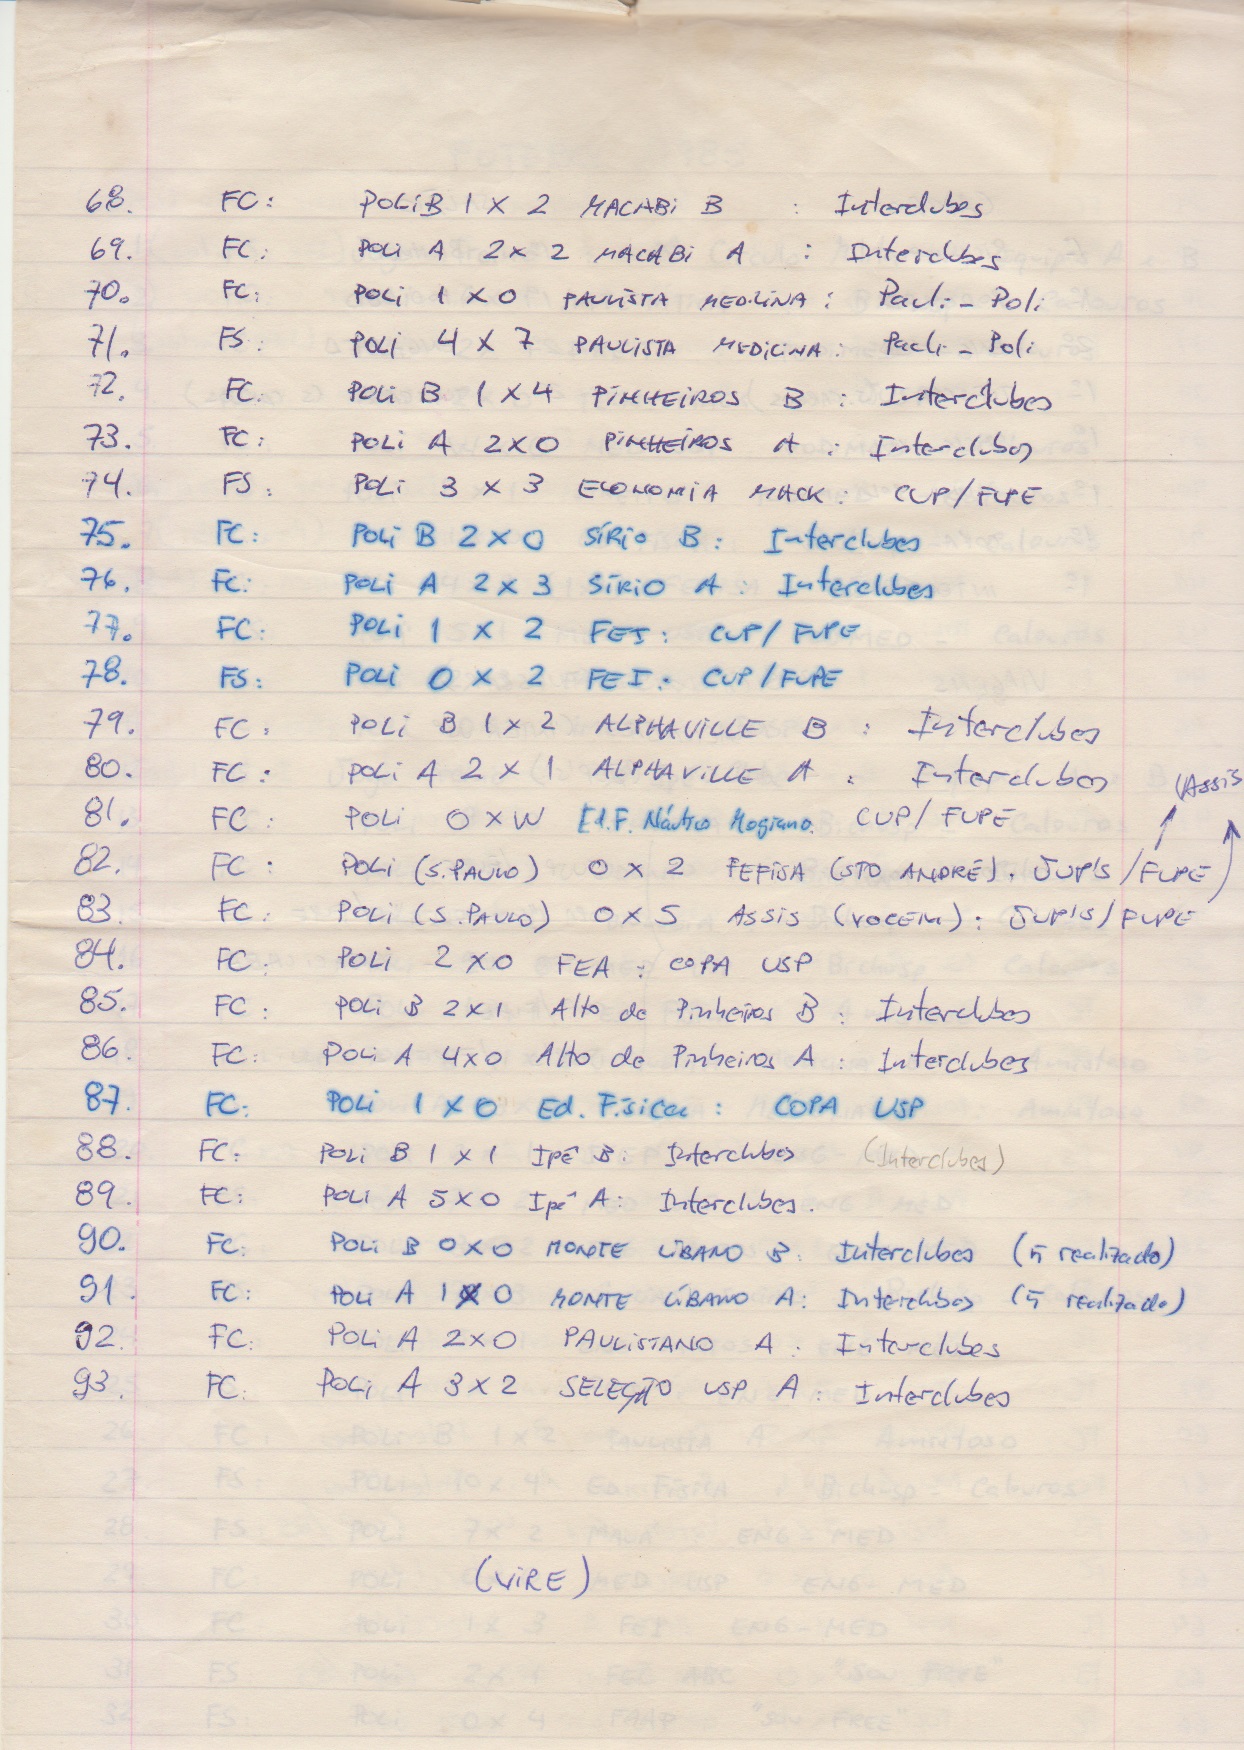 68. FC: POLI B 1 X 2 MACABI B : Interclubes
69. FC: POLI A 2 X 2 MACABI A : Interclubes
70. FC: POLI 1 X 0 PAULISTA MEDICINA : Pauli - Poli
71. FS: POLI 4 X 7 PAULISTA MEDICINA : Pauli - Poli
72. FC: POLI B 1 X 4 PINHEIROS B : Interclubes
73. FC: POLI A 2 X 0 PINHEIROS A : Interclubes
74. FS: POLI 3 X 3 ECONOMIA MACK : CUP/FUPE
75. FC: POLI B 2 X 0 SÍRIO B : Interclubes
76. FC: POLI A 2 X 3 SÍRIO A : Interclubes
77. FC: POLI 1 X 2 FEI : CUP/FUPE
78. FS: POLI 0 X 2 FEI : CUP/FUPE
79. FC: POLI B 1 X 2 ALPHAVILLE B : Interclubes
80. FC: POLI A 2 X 1 ALPHAVILLE A : Interclubes
(Assis
81. FC: POLI 0 X W Ed. F. Náutico Mogiano. CUP/FUPE
82. FC: POLI (S. PAULO) 0 X 2 FEFISA (STO ANDRÉ). JUP'S/FUPE
83. FC: POLI (S. PAULO) 0 X 5 ASSIS (VOCEM) : JUP'S/FUPE
84. FC: POLI 2 X 0 FEA : COPA USP
85. FC: POLI B 2 X 1 Alto de Pinheiros B : Interclubes
86. FC: POLI A 4 X 0 Alto de Pinheiros A : Interclubes
87. FC: POLI 1 X 0 Ed. Física : COPA USP
88. FC: POLI B 1 X 1 Ipê B : Interclubes (Interclubes)
89. FC: POLI A 5 X 0 Ipê A : Interclubes.
90. FC: POLI B 0 X 0 MONTE LÍBANO B : Interclubes (ñ realizado)
91. FC: POLI A 1 X 0 MONTE LÍBANO A : Interclubes (ñ realizado)
92. FC: POLI A 2 X 0 PAULISTANO A : Interclubes
93. FC: POLI A 3 X 2 SELEÇÃO USP A : Interclubes
(VIRE)